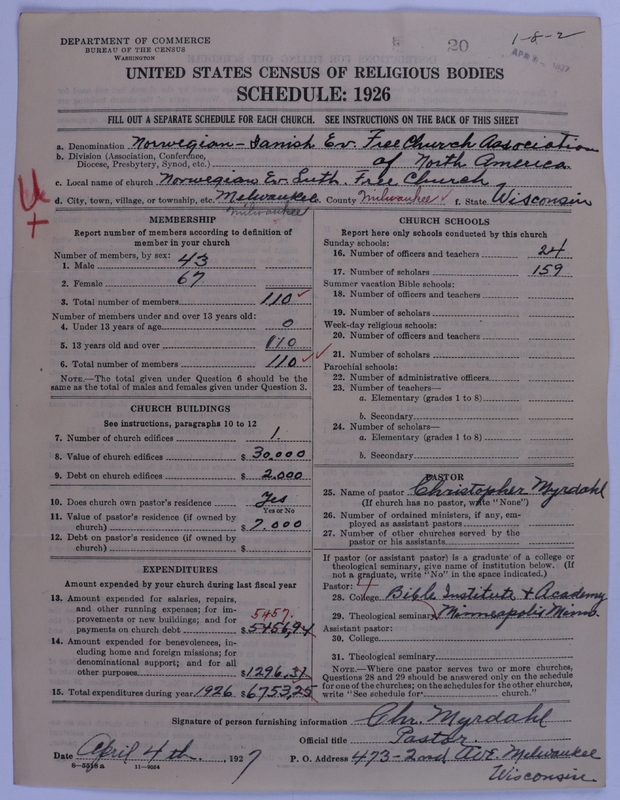 1-8-2
DEPARTMENT OF COMMERCE
BUREAU OF THE CENSUS
WASHINGTON
20
UNITED STATES CENSUS OF RELIGIOUS BODIES
SCHEDULE: 1926
FILL OUT A SEPARATE SCHEDULE FOR EACH CHURCH. SEE INSTRUCTIONS ON THE BACK OF THIS SHEET
a. Denomination Norwegian-Danish Ev. Free Church Association
b. Division (Association, Conference, Diocese, Presbytery, Synod, etc.) of North America
c. Local name of church Norwegian Ev. Luth. Free Church
d. City, town, village, or township, etc. Milwaukee County Milwaukee f. State Wisconsin
Milwaukee
MEMBERSHIP
Report number of members according to definition of
member in your church
Number of members, by sex:
1. Male 43
2. Female 67
3. Total number of members 110
Number of members under and over 13 years old:
4. Under 13 years of age 0
5. 13 years old and over 110
6. Total number of members 110
NOTE.—The total given under Question 6 should be the
same as the total of males and females given under Question 3.
CHURCH BUILDINGS
See instructions, paragraphs 10 to 12
7. Number of church edifices 1.
8. Value of church edifices $30,000
9. Debt on church edifices $2,000
10. Does church own pastor's residence Yes
Yes or No
11. Value of pastor's residence (if owned by
church) $7,000
12. Debt on pastor's residence (if owned by
church) $
EXPENDITURES
Amount expended by your church during last fiscal year
13. Amount expended for salaries, repairs,
and other running expenses; for im-
provements or new buildings; and for
payments on church debt $5456,94
5457.
14. Amount expended for benevolences, in-
cluding home and foreign missions; for
denominational support; and for all
other purposes $1296,31
15. Total expenditures during year 1926 $6753,25
CHURCH SCHOOLS
Report here only schools conducted by this church
Sunday schools:
16. Number of officers and teachers 24
17. Number of scholars 159
Summer vacation Bible schools:
18. Number of officers and teachers
19. Number of scholars
Week-day religious schools:
20. Number of officers and teachers
21. Number of scholars
Parochial schools:
22. Number of administrative officers
23. Number of teachers—
a. Elementary (grades 1 to 8)
b. Secondary
24. Number of scholars—
a. Elementary (grades 1 to 8)
b. Secondary
PASTOR
25. Name of pastor Christopher Myrdahl
(If church has no pastor, write "None")
26. Number of ordained ministers, if any, em-
ployed as assistant pastors
27. Number of other churches served by the
pastor or his assistants
If pastor (or assistant pastor) is a graduate of a college or
theological seminary, give name of institution below. (If
not a graduate, write "No" in the space indicated.)
Pastor: 4
28. College Bible Institute & Academy
29. Theological seminary Minneapolis Minn.
Assistant pastor:
30. College
31. Theological seminary
NOTE.—Where one pastor serves two or more churches,
Questions 28 and 29 should be answered only on the schedule
for one of the churches; on the schedules for the other churches,
write "See schedule for church."
Signature of person furnishing information Chr. Myrdahl
Official title Pastor.
Date April 4th, 1927 P. O. Address 473-2nd Ave. Milwaukee
Wisconsin
11—9034